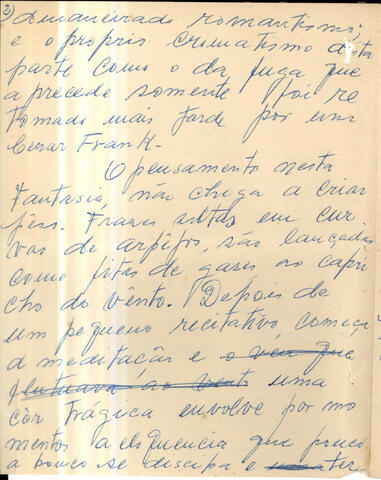 2) amaneirado romantismo;
e o proprio cromatismo desta
parte como o da fuga que
a precede somente foi re
tomado mais tarde por um
Cesar Frank.
O pensamento nesta
Fantasia, não chega a criar
pêso. Frases soltas em cur
vas de arpêjos, são lançadas
como fitas de gases ao capri
cho do vênto. Depois de
um pequeno recitativo, começa
a meditação e o veu que
flutuava ao vento uma
côr trágica envolve por mo
mentos a eloquencia que pouco
a pouco se discipa e ater